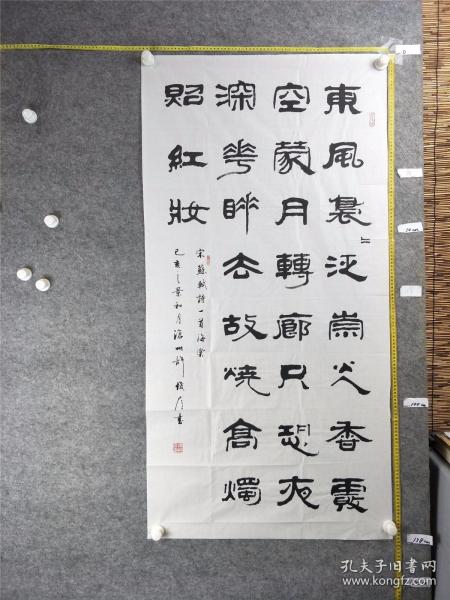 東風裊〻泛崇光香霧
空蒙月轉廊只恐夜
深花睡去故燒高燭
照紅妝
宋蘇軾詩一首海棠
己亥之葉和月滄州許俊書
0
50cm
100cm
138cm
孔夫子旧书网
www.kongfz.com